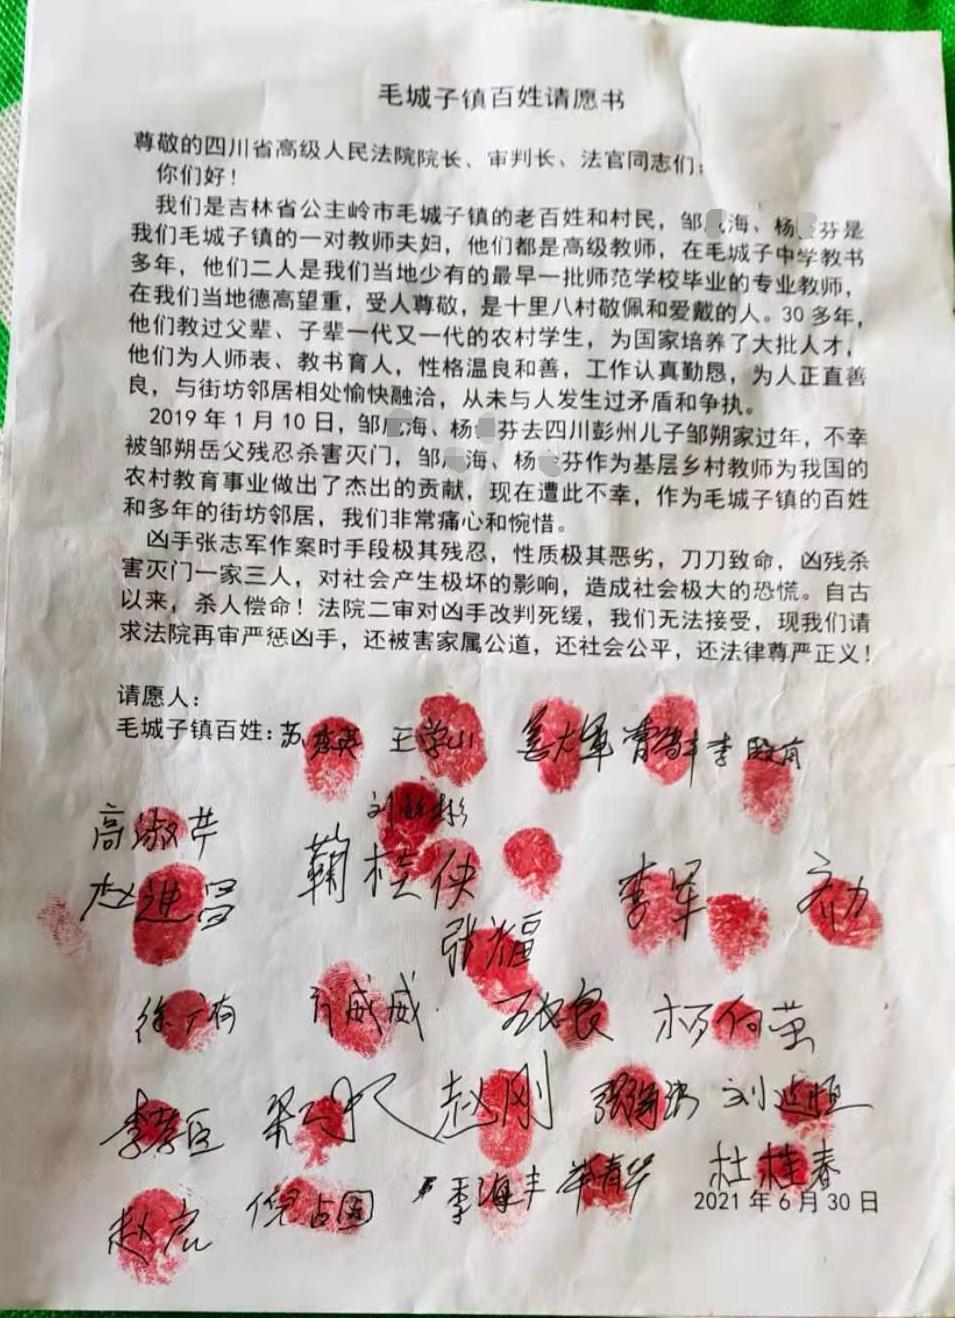 毛城子镇百姓请愿书
尊敬的四川省高级人民法院院长、审判长、法官同志们：
你们好！
我们是吉林省公主岭市毛城子镇的老百姓和村民，邹海、杨芬是
我们毛城子镇的一对教师夫妇，他们都是高级教师，在毛城子中学教书
多年，他们二人是我们当地少有的最早一批师范学校毕业的专业教师，
在我们当地德高望重，受人尊敬，是十里八村敬佩和爱戴的人。30多年，
他们教过父辈、子辈一代又一代的农村学生，为国家培养了大批人才，
他们为人师表、教书育人，性格温良和善，工作认真勤恳，为人正直善
良，与街坊邻居相处愉快融洽，从未与人发生过矛盾和争执。
2019年1月10日，邹海、杨芬去四川彭州儿子邹朔家过年，不幸
被邹朔岳父残忍杀害灭门，邹海、杨芬作为基层乡村教师为我国的
农村教育事业做出了杰出的贡献，现在遭此不幸，作为毛城子镇的百姓
和多年的街坊邻居，我们非常痛心和惋惜。
凶手张志军作案时手段极其残忍，性质极其恶劣，刀刀致命，凶残杀
害灭门一家三人，对社会产生极坏的影响，造成社会极大的恐慌。自古
以来，杀人偿命！法院二审对凶手改判死缓，我们无法接受，现我们请
求法院再审严惩凶手，还被害家属公道，还社会公平，还法律尊严正义！
请愿人：
毛城子镇百姓：苏秀英 王学山 姜大军 李
高淑芹
赵进 鞠桂侠 李军
张福
徐 威威 杨向荣
李 梁 赵刚 刘
杜桂春
赵 倪占国 季海丰 青华
2021年6月30日